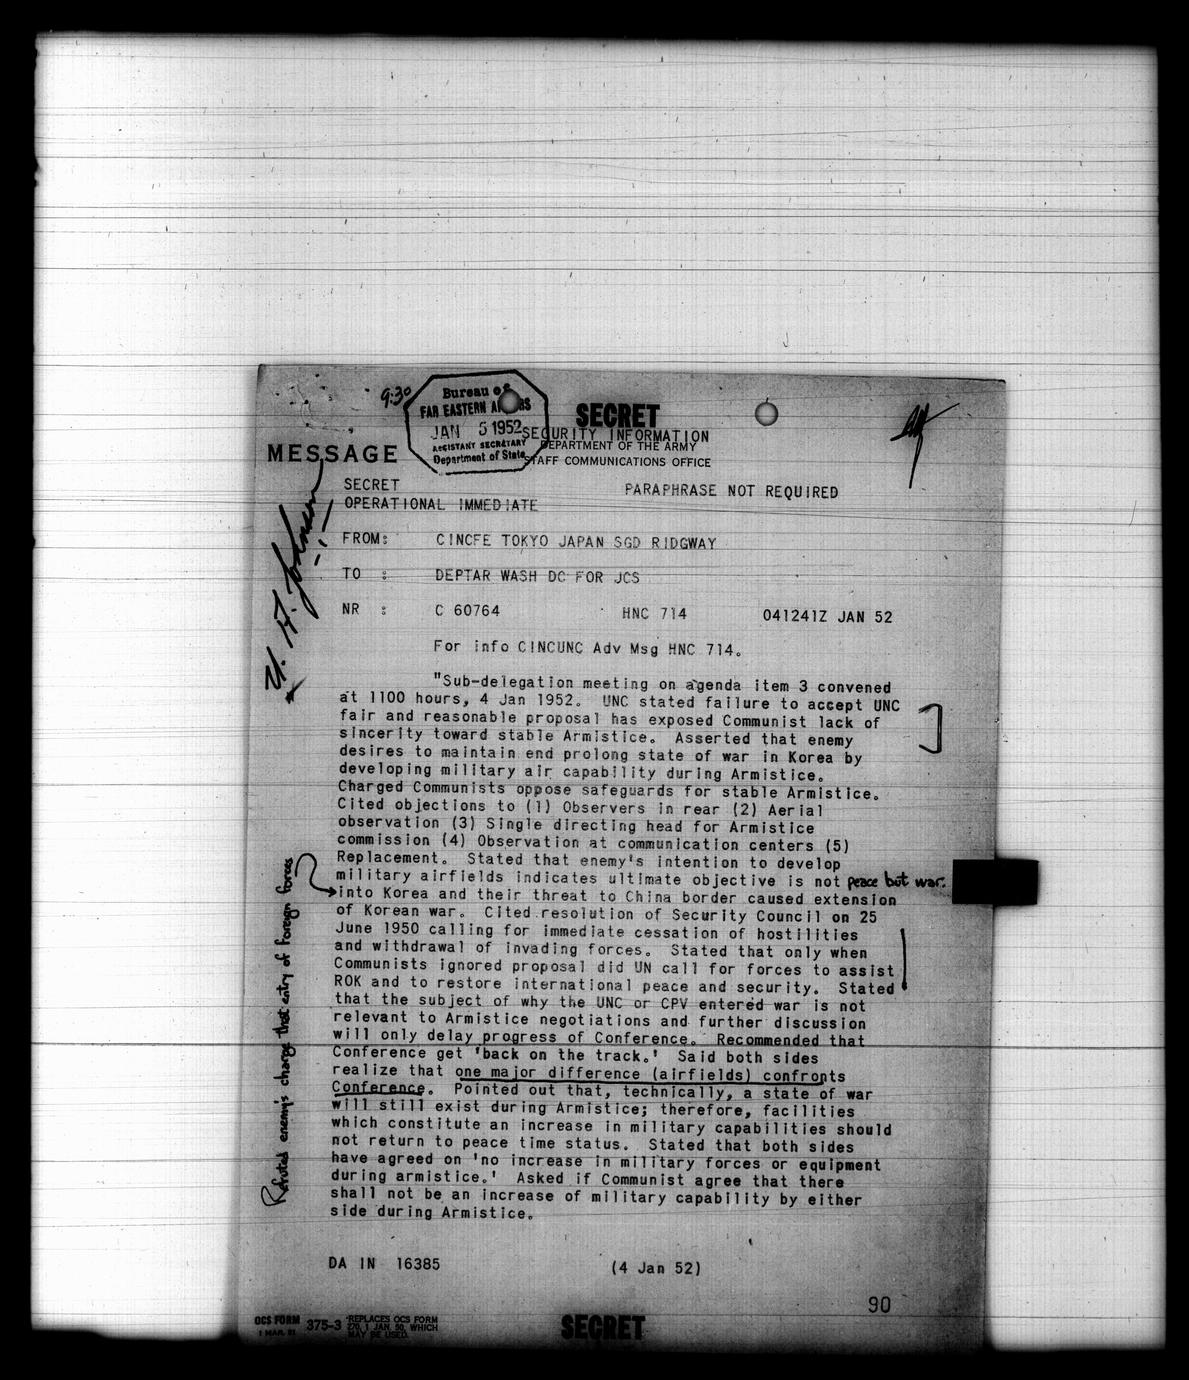 9:30
Bureau of
FAR EASTERN AFFAIRS
JAN 5 1952
ASSISTANT SECRETARY
Department of State
SECRET
SECURITY INFORMATION
DEPARTMENT OF THE ARMY
STAFF COMMUNICATIONS OFFICE
MESSAGE
SECRET PARAPHRASE NOT REQUIRED
OPERATIONAL IMMEDIATE
FROM: CINCFE TOKYO JAPAN SGD RIDGWAY
TO : DEPTAR WASH DC FOR JCS
NR : C 60764 HNC 714 041241Z JAN 52
For info CINCUNC Adv Msg HNC 714.
"Sub-delegation meeting on agenda item 3 convened
at 1100 hours, 4 Jan 1952. UNC stated failure to accept UNC
fair and reasonable proposal has exposed Communist lack of
sincerity toward stable Armistice. Asserted that enemy
desires to maintain end prolong state of war in Korea by
developing military air capability during Armistice.
Charged Communists oppose safeguards for stable Armistice.
Cited objections to (1) Observers in rear (2) Aerial
observation (3) Single directing head for Armistice
commission (4) Observation at communication centers (5)
Replacement. Stated that enemy's intention to develop
military airfields indicates ultimate objective is not peace but war.
into Korea and their threat to China border caused extension
of Korean war. Cited resolution of Security Council on 25
June 1950 calling for immediate cessation of hostilities
and withdrawal of invading forces. Stated that only when
Communists ignored proposal did UN call for forces to assist
ROK and to restore international peace and security. Stated
that the subject of why the UNC or CPV entered war is not
relevant to Armistice negotiations and further discussion
will only delay progress of Conference. Recommended that
Conference get 'back on the track.' Said both sides
realize that one major difference (airfields) confronts
Conference. Pointed out that, technically, a state of war
will still exist during Armistice; therefore, facilities
which constitute an increase in military capabilities should
not return to peace time status. Stated that both sides
have agreed on 'no increase in military forces or equipment
during armistice.' Asked if Communist agree that there
shall not be an increase of military capability by either
side during Armistice.
DA IN 16385 (4 Jan 52)
90
OCS FORM 375-3 REPLACES OCS FORM
1 MAR 51 270, 1 JAN. 50, WHICH
MAY BE USED.
SECRET
U. A. Johnson
Refuted enemy's charge that entry of foreign forces